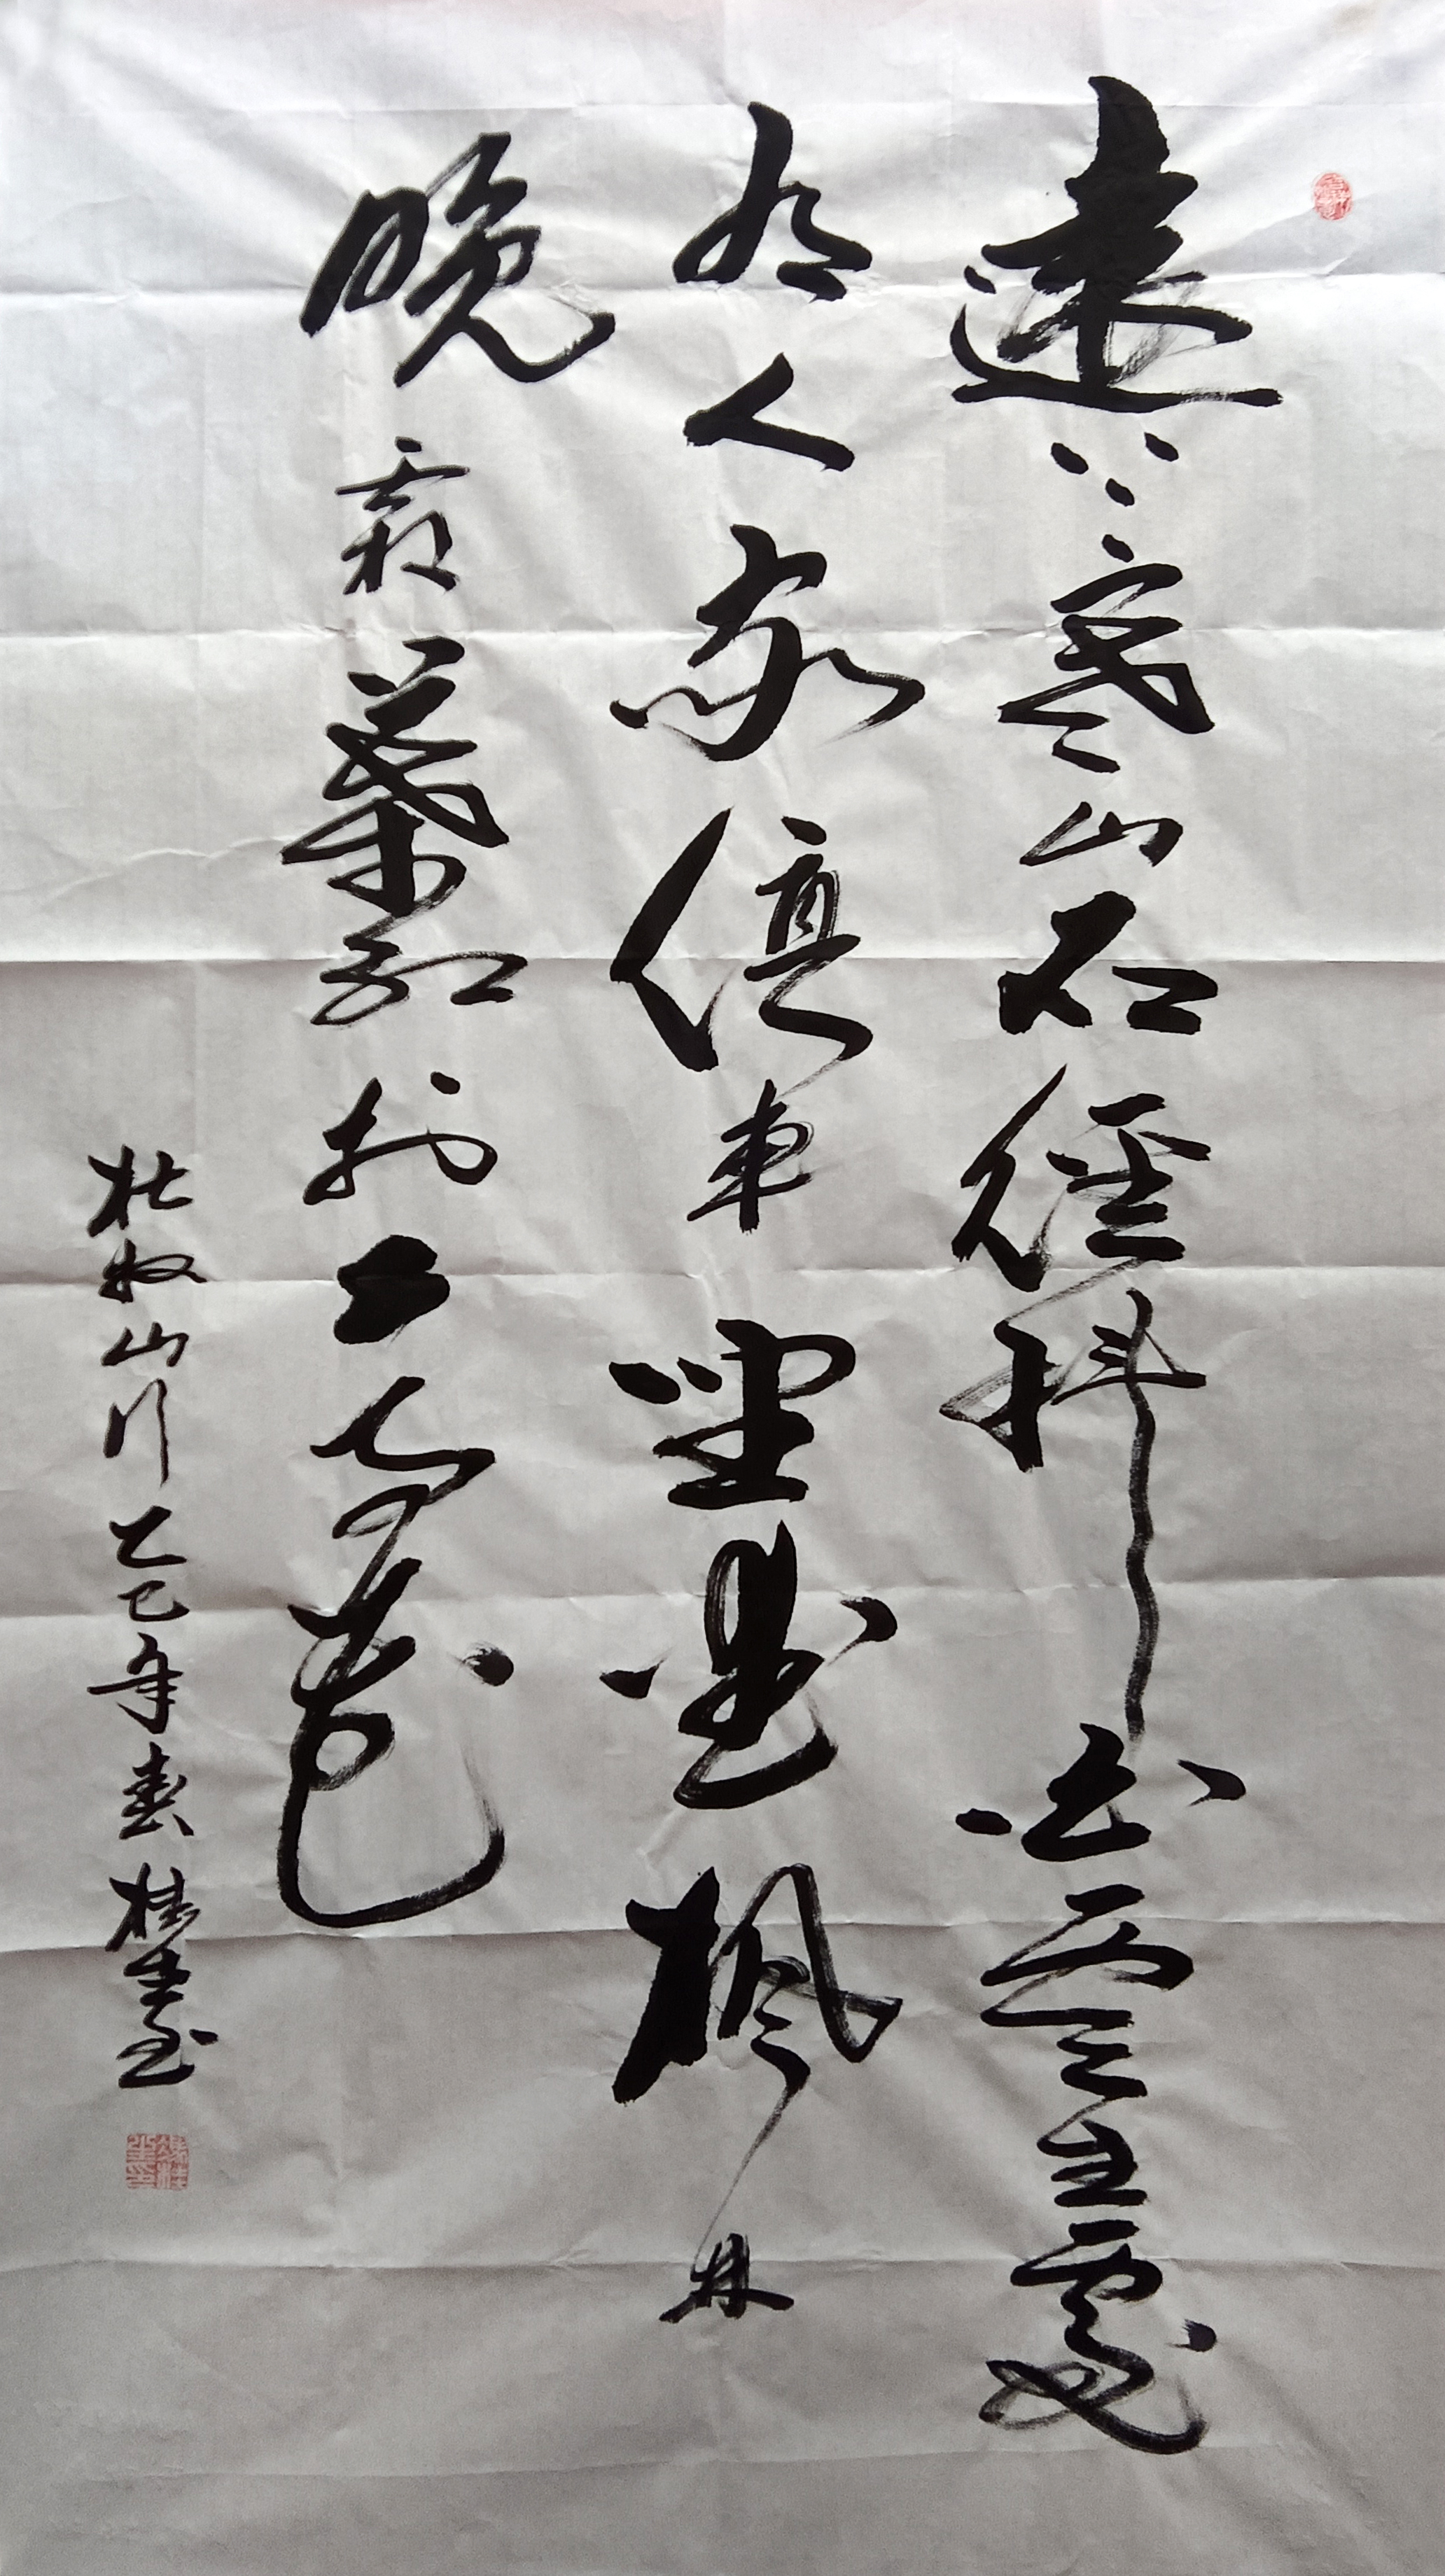 遠上寒山石徑斜白雲生處
有人家停車坐愛楓林
晚霜葉紅於二月花
杜牧山行乙巳年春桂生書